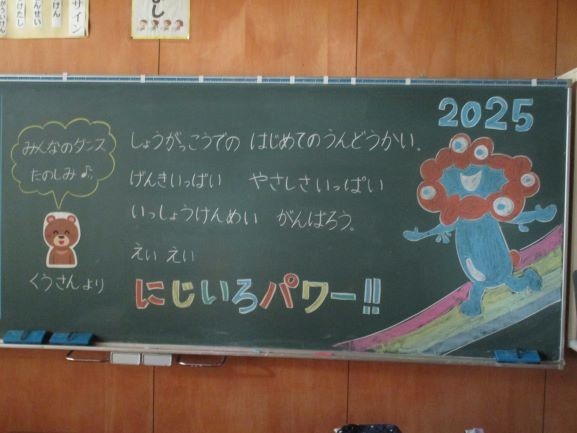 サイン
みんなのダンス
たのしみ♪
くうさんより
しょうがっこうでの はじめてのうんどうかい。
げんきいっぱい やさしさいっぱい
いっしょうけんめい がんばろう。
えい えい
にじいろパワー!!
2025